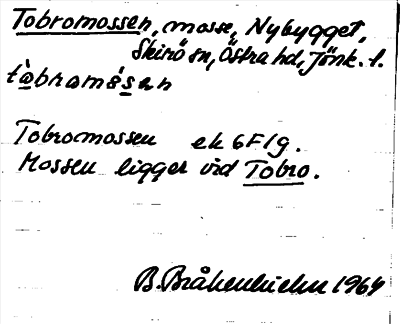 Tobromossen, mosse, Nybygget,
Skirö sn, Östra hd, Jönk. l.
tòbramósen
Tobromossen ek 6F1g.
Mossen ligger vid Tobro.
B. Bråkenhielm 1964